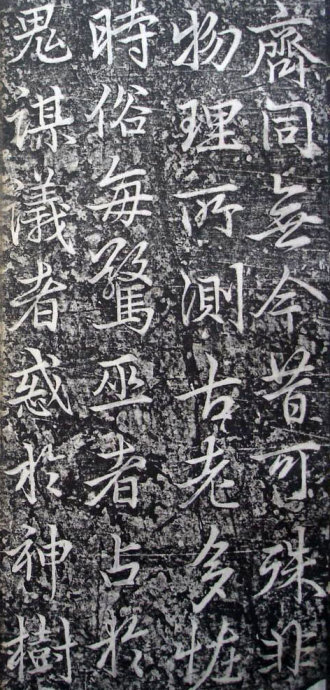 齊同無今昔可殊非
物理所測古老多恠
時俗每驚巫者占於
鬼謀議者惑於神樹